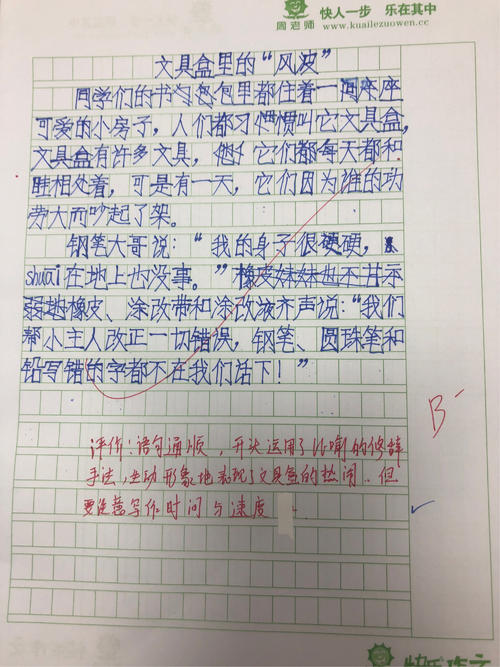 周老师
快人一步 乐在其中
www.kuailezuowen.cc
文具盒里的“风波”
同学们的书包里都住着一座座
可爱的小房子，人们都习惯叫它文具盒，
文具盒有许多文具，它们都每天都和
睦相处着，可是有一天，它们因为谁的功
劳大而吵起了架。
钢笔大哥说：“我的身子很硬硬，
shuai在地上也没事。”橡皮妹妹也不甘示
弱地橡皮、涂改带和涂改液齐声说：“我们
帮小主人改正一切错误，钢笔、圆珠笔和
铅写错的字都不在我们话下！”
B-
评价：语句通顺，开头运用了比喻的修辞
手法，生动形象地表现了文具盒的热闹..但
要注意写作时间与速度